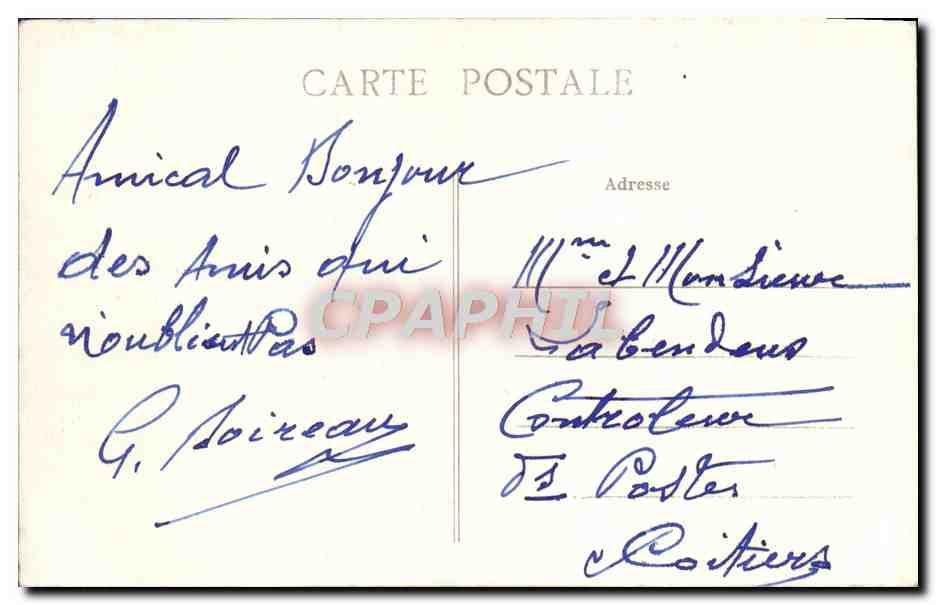 CARTE POSTALE
Amical Bonjour
des Amis qui
n'oublient Pas
G. Soireau
Adresse
Mme et Monsieur
Labendous
Controleur
Ds Postes
Poitiers
CPAPHIL